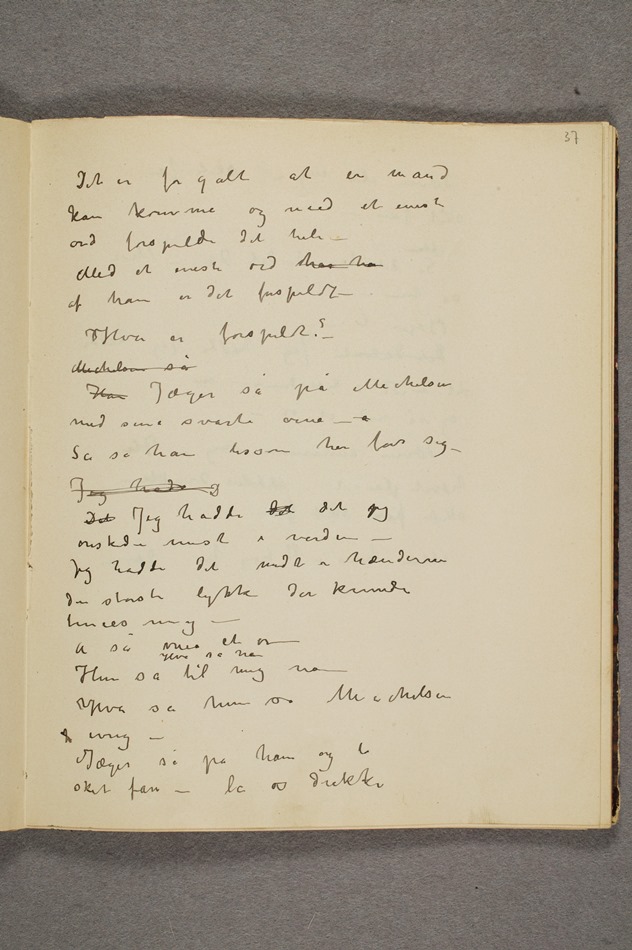 37
Det er for galt at en mand
kan komme og med et enest
ord forspilde det hele –
Med et enest ord han ha
af ham er det forspildt –
Hva er forspildt? –
Michelsen så
Han Jæger så på Michelsen
med sine svarte øine –
Så sa han lissom hen for sig –
Jeg hadde
Det Jeg hadde det det jeg
ønskede mest i verden –
Jeg hadde det midt i hænderne
den største lykke der kunde
times mig –
A så et or
Hva sa na
Hun sa til mig na
Hva sa hun sa Michelsen
ivrig –
Jæger så på ham og lo
la os drekke